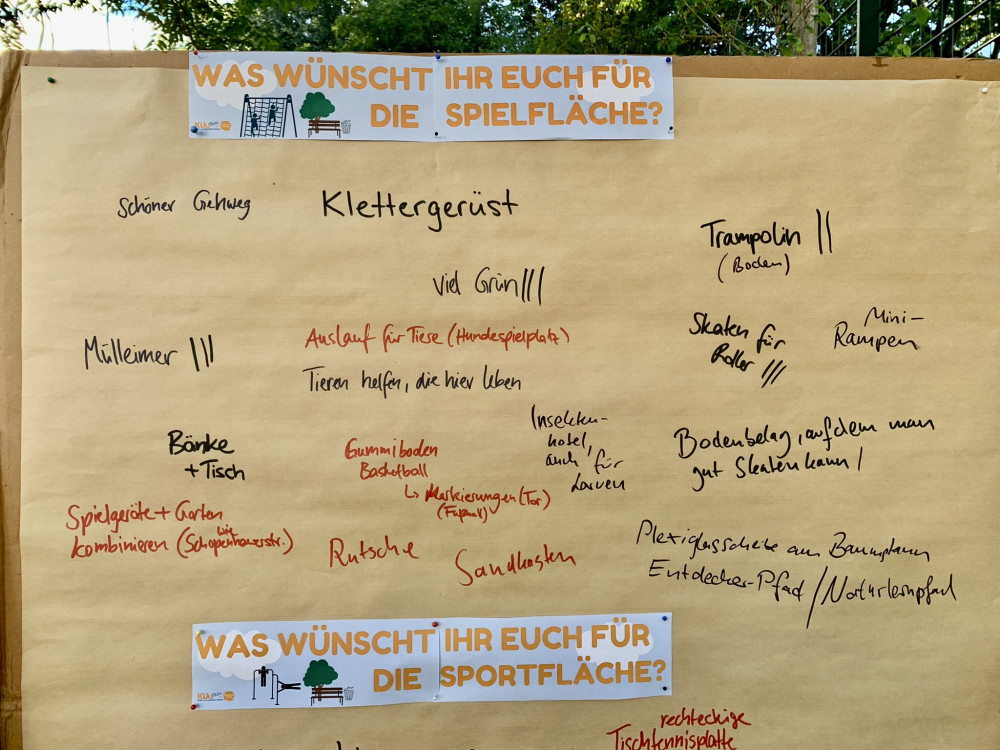 WAS WÜNSCHT IHR EUCH FÜR
DIE SPIELFLÄCHE?
Schöner Gehweg
Klettergerüst
Trampolin ||
(Boden)
viel Grün |||
Mülleimer |||
Auslauf für Tiere (Hundespielplatz)
Tieren helfen, die hier leben
Skaten für
Roller |||
Mini-
Rampen
Bänke
+ Tisch
Gummiboden
Basketball
↳ Markierungen (Tor)
(Fußball)
Insekten-
hotel,
auch für
Larven
Bodenbelag, auf dem man
gut Skaten kann |
Spielgeräte + Garten
kombinieren (wie Schopenhauerstr.)
Rutsche
Sandkasten
Plexiglasscheibe am
Entdecker-Pfad / Naturlernpfad
WAS WÜNSCHT IHR EUCH FÜR
DIE SPORTFLÄCHE?
rechteckige
Tischtennisplatte